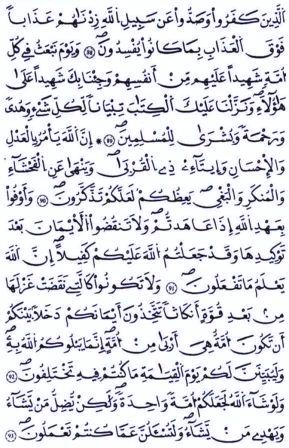 الَّذِينَ كَفَرُوا وَصَدُّوا عَن سَبِيلِ اللَّهِ زِدْنَٰهُمْ عَذَاباً
فَوْقَ الْعَذَابِ بِمَا كَانُوا يُفْسِدُونَ ٨٨ وَيَوْمَ نَبْعَثُ فِي كُلِّ
أُمَّةٍ شَهِيداً عَلَيْهِم مِّنْ أَنفُسِهِمْ وَجِئْنَا بِكَ شَهِيداً عَلَىٰ
هَٰؤُلَاءِ وَنَزَّلْنَا عَلَيْكَ الْكِتَٰبَ تِبْيَٰناً لِّكُلِّ شَيْءٍ وَهُدىً
وَرَحْمَةً وَبُشْرَىٰ لِلْمُسْلِمِينَ ٨٩ * إِنَّ اللَّهَ يَأْمُرُ بِالْعَدْلِ
وَالْإِحْسَانِ وَإِيتَاءِ ذِي الْقُرْبَىٰ وَيَنْهَىٰ عَنِ الْفَحْشَاءِ
وَالْمُنكَرِ وَالْبَغْيِ يَعِظُكُمْ لَعَلَّكُمْ تَذَّكَّرُونَ ٩٠ وَأَوْفُوا
بِعَهْدِ اللَّهِ إِذَا عَاهَدتُّمْ وَلَا تَنقُضُوا الْأَيْمَانَ بَعْدَ
تَوْكِيدِهَا وَقَدْ جَعَلْتُمُ اللَّهَ عَلَيْكُمْ كَفِيلاً إِنَّ اللَّهَ
يَعْلَمُ مَا تَفْعَلُونَ ٩١ وَلَا تَكُونُوا كَالَّتِي نَقَضَتْ غَزْلَهَا
مِنْ بَعْدِ قُوَّةٍ أَنكَاثاً تَتَّخِذُونَ أَيْمَانَكُمْ دَخَلاً بَيْنَكُمْ
أَن تَكُونَ أُمَّةٌ هِيَ أَرْبَىٰ مِنْ أُمَّةٍ إِنَّمَا يَبْلُوكُمُ اللَّهُ بِهِ
وَلَيُبَيِّنَنَّ لَكُمْ يَوْمَ الْقِيَٰمَةِ مَا كُنتُمْ فِيهِ تَخْتَلِفُونَ ٩٢
وَلَوْ شَاءَ اللَّهُ لَجَعَلَكُمْ أُمَّةً وَاحِدَةً وَلَٰكِن يُضِلُّ مَن يَشَاءُ
وَيَهْدِي مَن يَشَاءُ وَلَتُسْـَٔلُنَّ عَمَّا كُنتُمْ تَعْمَلُونَ ٩٣